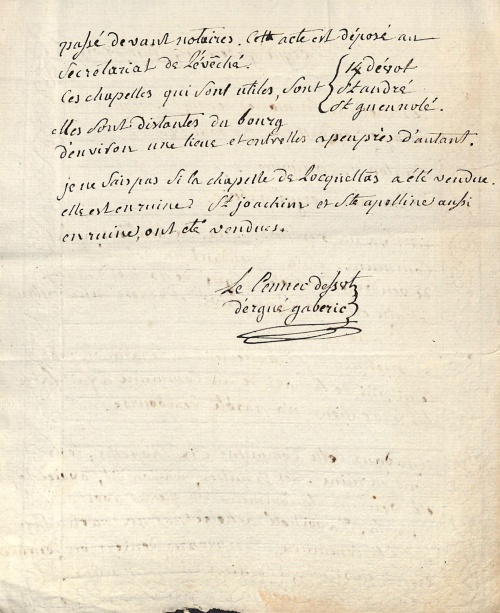 passé devant notaires. Cette acte est déposé au
Secrétariat de l'évêché.
Ces chapelles qui sont utiles, sont
St andré
St guennolé.
elles sont distantes du bourg
d'environ une lieue et entrelles apeuprès d'autant.
je ne sais pas si la chapelle de Locqueltas a été vendue.
elle est en ruine. St joachim et Ste apolline aussi
en ruine, ont été vendues.
Le Pennec dessvt
d'ergué gaberic